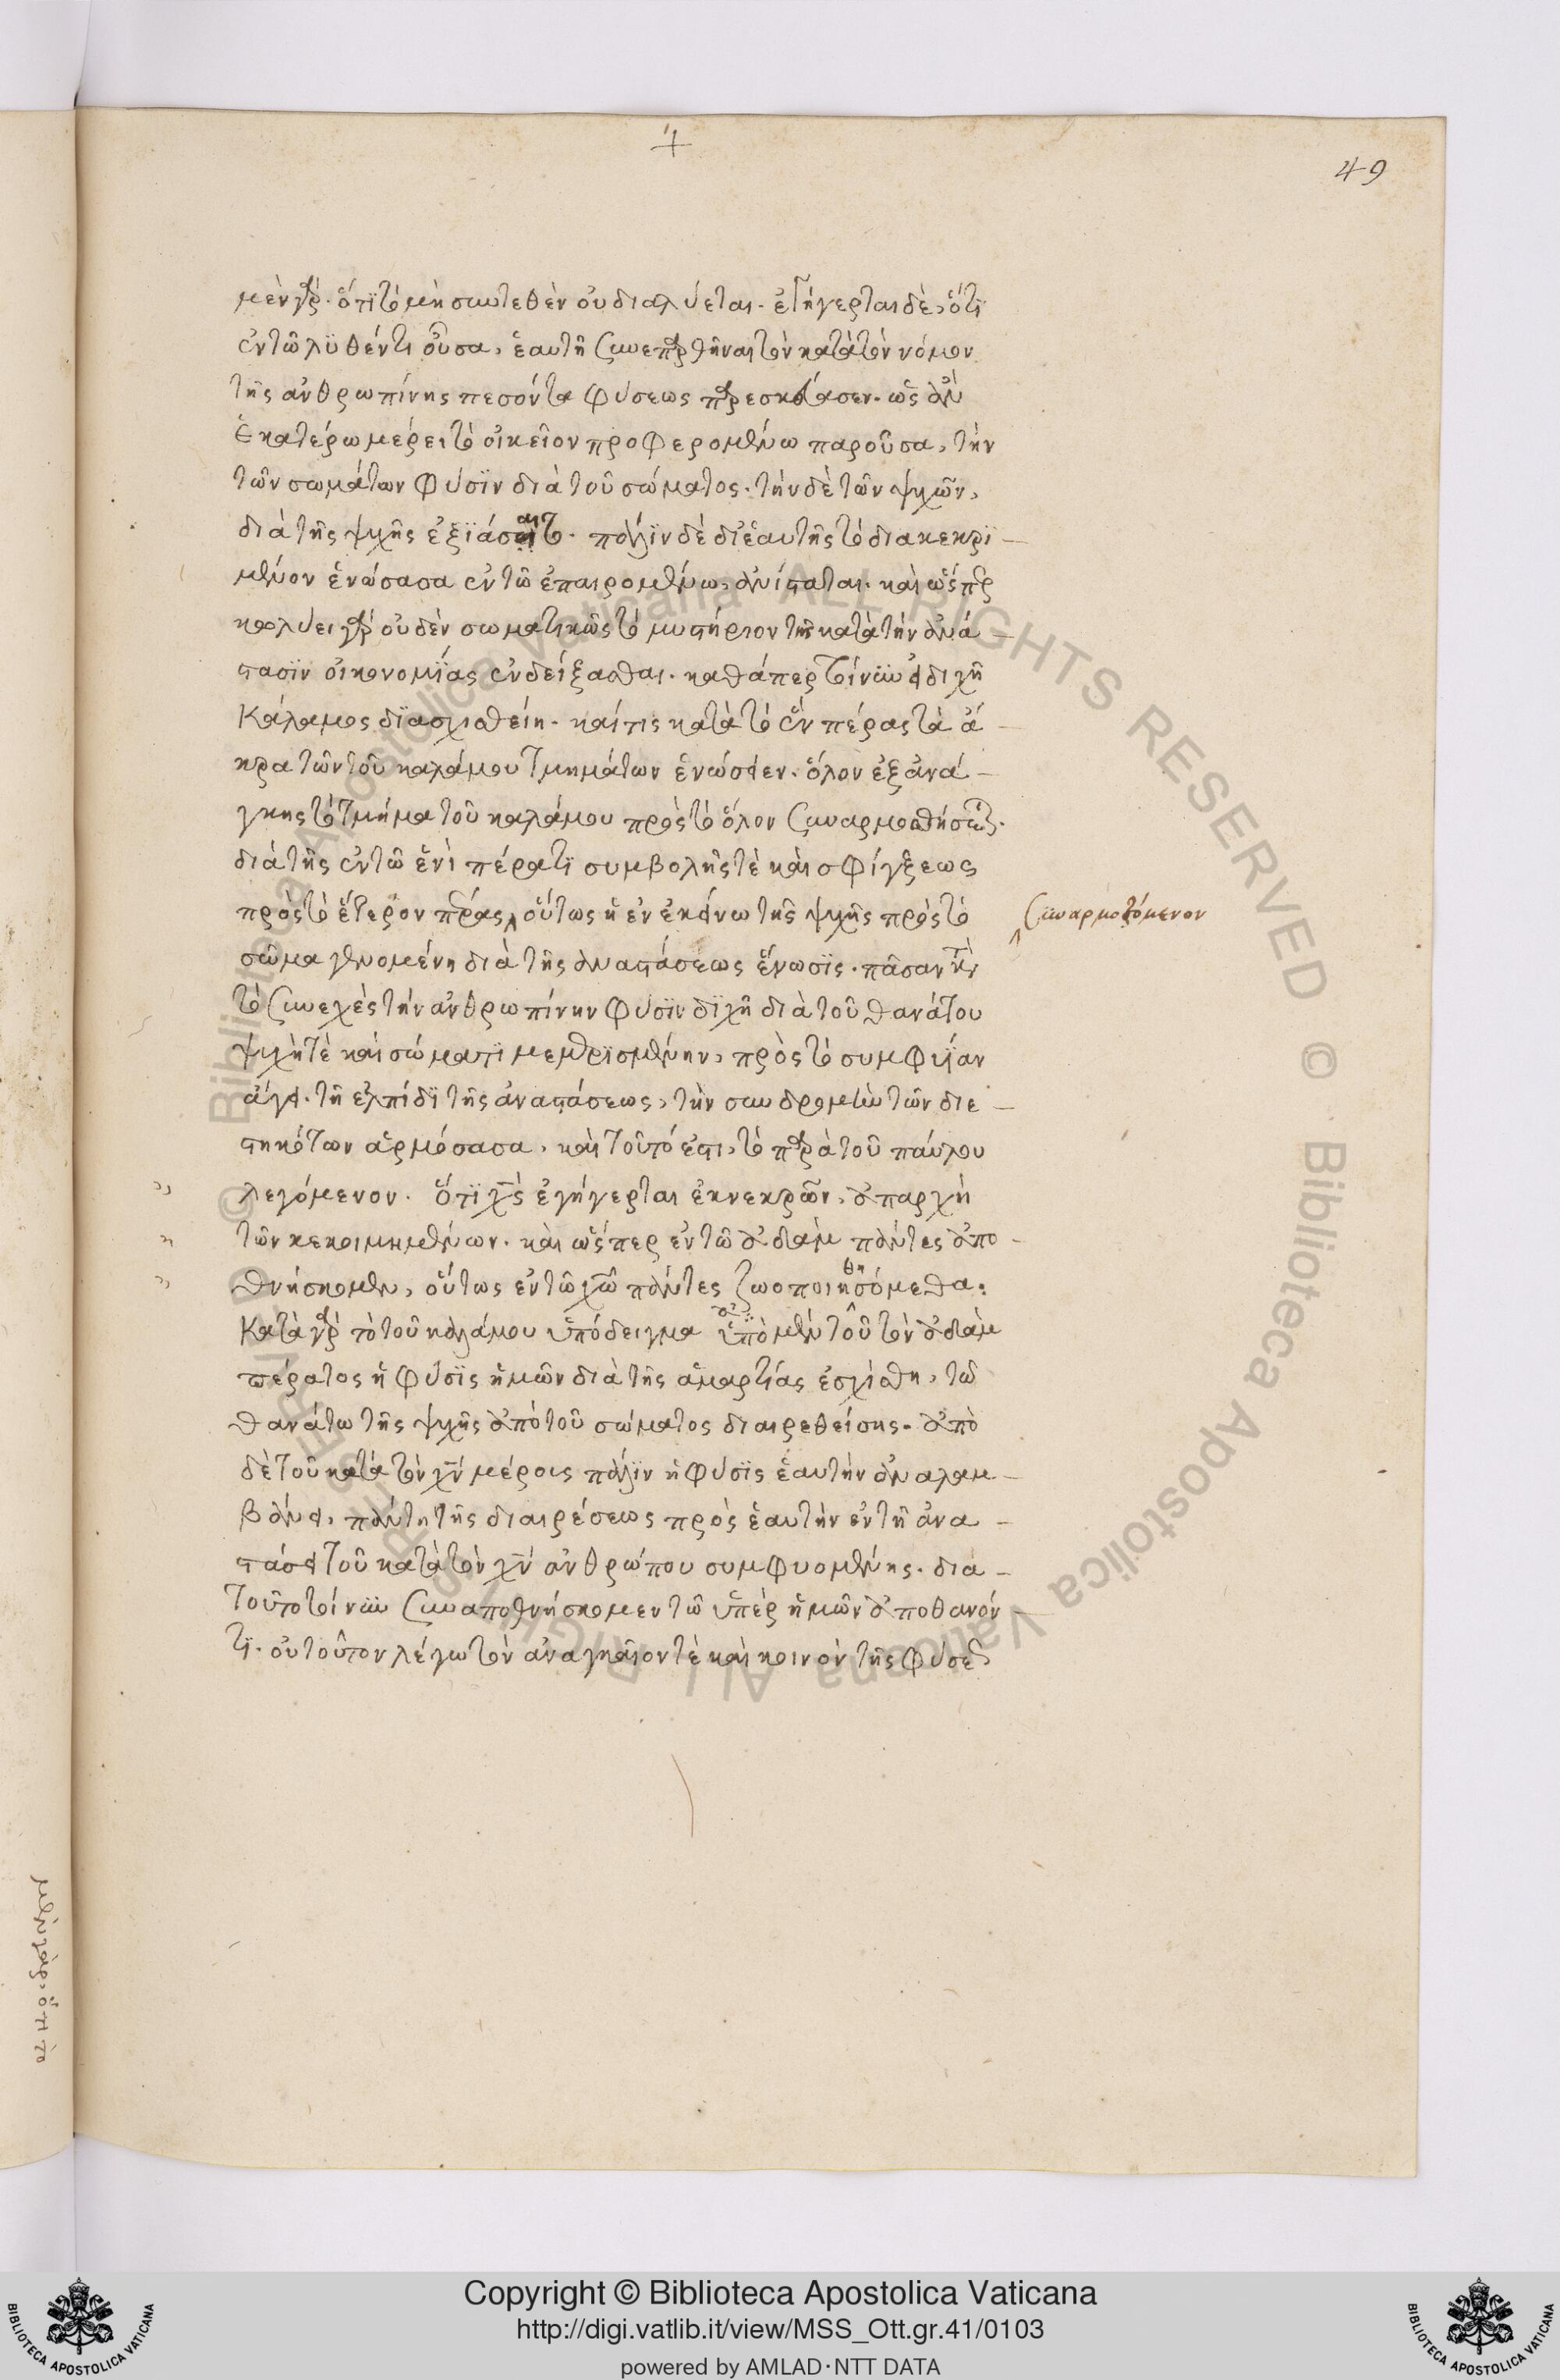 49
μὲν γὰρ. ὅτι τὸ μὴ συντεθὲν οὐ διαλύεται. ἐγήγερται δὲ, ὅτι
ἐν τῶ λυθέντι οὖσα, ἑαυτῆ συνεπαρθῆναι τὸν κατὰ τὸν νόμον
τῆς ἀνθρωπίνης πεσόντα φύσεως παρεσκεύασεν. ὡς ἂν
ἑκατέρω μέρει τὸ οἰκεῖον προφερομένω παροῦσα, τὴν
τῶν σωμάτων φύσιν διὰ τοῦ σώματος. τὴν δὲ τῶν ψυχῶν,
διὰ τῆς ψυχῆς ἐξιάσαιτο. πάλιν δὲ δι' ἑαυτῆς τὸ διακεκρι
μένον ἑνώσασα ἐν τῶ ἐπαιρομένω, ἀνίσταται. καὶ ὥσπερ
κωλύει γὰρ οὐδὲν σωματικῶς τὸ μυστήριον τῆς κατὰ τὴν ἀνά
στασιν οἰκονομίας ἐνδείξασθαι. καθάπερ τοίνυν εἰ διχῆ
κάλαμος διασχισθείη. καί τις κατὰ τὸ ἓν πέρας τὰ ἄ
κρα τῶν τοῦ καλάμου τμημάτων ἑνώσειεν. ὅλον ἐξ ἀνά
γκης τὸ τμῆμα τοῦ καλάμου πρὸς τὸ ὅλον συναρμοσθήσεται.
διὰ τῆς ἐν τῶ ἑνὶ πέρατι συμβολῆς τὲ καὶ σφίγξεως
πρὸς τὸ ἕτερον πέρας, οὕτως ἡ ἐν ἐκείνω τῆς ψυχῆς πρὸς τὸ
συναρμοζόμενον
σῶμα γενομένη διὰ τῆς ἀναστάσεως ἕνωσις. πᾶσαν κατὰ
τὸ συνεχὲς τὴν ἀνθρωπίνην φύσιν διχῆ διὰ τοῦ θανάτου
ψυχῆ τὲ καὶ σώματι μεμερισμένην, πρὸς τὸ συμφυίαν
ἄγει. τῆ ἐλπίδι τῆς ἀναστάσεως, τὴν συνδρομὴν τῶν διε
στηκότων ἁρμόσασα, καὶ τοῦτό ἐστι, τὸ παρὰ τοῦ παύλου
λεγόμενον. ὅτι χς ἐγήγερται ἐκ νεκρῶν, ἀπαρχὴ
τῶν κεκοιμημένων. καὶ ὥσπερ ἐν τῶ ἀδὰμ πάντες ἀπο
θνήσκομεν, οὕτως ἐν τῶ χω πάντες ζωοποιηθησόμεθα:
κατὰ γὰρ τὸ τοῦ καλάμου ὑπόδειγμα ἀπὸ μὲν τοῦ τὸν ἀδὰμ
πέρατος ἡ φύσις ἡμῶν διὰ τῆς ἁμαρτίας ἐσχίσθη, τῶ
θανάτω τῆς ψυχῆς ἀπὸ τοῦ σώματος διαιρεθείσης. ἀπὸ
δὲ τοῦ κατὰ τὸν χν μέρους πάλιν ἡ φύσις ἑαυτὴν ἀναλαμ
βάνει, πάντη τῆς διαιρέσεως πρὸς ἑαυτὴν ἐν τῆ ἀνα
στάσει τοῦ κατὰ τὸν χν ἀνθρώπου συμφυομένης. διὰ
τοῦτο τοίνυν συναποθνήσκομεν τῶ ὑπὲρ ἡμῶν ἀποθανόν
τι. οὐ τοῦτον λέγω τὸν ἀναγκαῖον τὲ καὶ κοινὸν τῆς φύσεως
μὲν γὰρ, ὅτι τὸ
© Biblioteca Apostolica Vaticana ALL RIGHTS RESERVED © Biblioteca Apostolica Vaticana ALL RIGHTS RESERVED
Copyright © Biblioteca Apostolica Vaticana
http://digi.vatlib.it/view/MSS_Ott.gr.41/0103
powered by AMLAD·NTT DATA
BIBLIOTECA APOSTOLICA VATICANA
BIBLIOTECA APOSTOLICA VATICANA